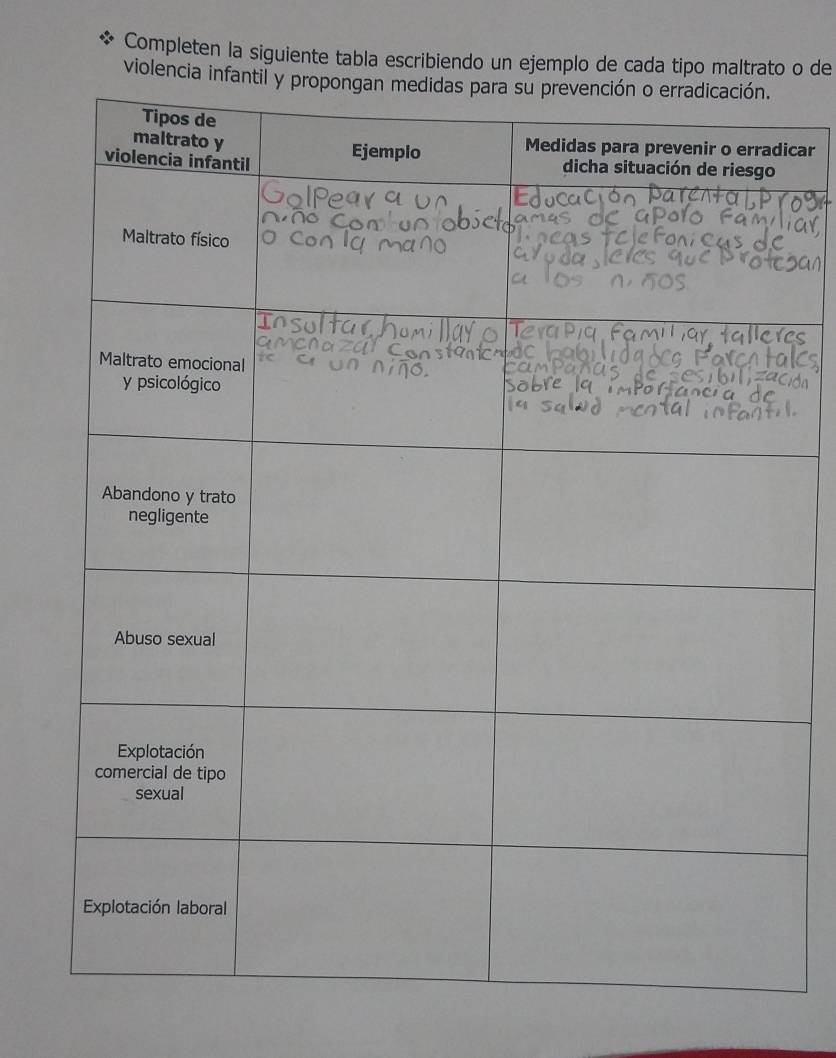 ❖ Completen la siguiente tabla escribiendo un ejemplo de cada tipo maltrato o de
violencia infantil y propongan medidas para su prevención o erradicación.
Tipos de
maltrato y
violencia infantil
Ejemplo
Medidas para prevenir o erradicar
dicha situación de riesgo
Maltrato físico
Golpear a un
niño con un objeto
o con la mano
Educación parental, Progr
amas de apollo Familiar,
líneas telefonicas de
ayuda, leies que Protejan
a los niños.
Maltrato emocional
y psicológico
Insultar, humillar o
amenazar constanteme
te a un niño.
Terapia Familiar, talleres
de habilidades Parentales,
campañas de sesibilización
sobre la importancia de
la salud mental infantil.
Abandono y trato
negligente
Abuso sexual
Explotación
comercial de tipo
sexual
Explotación laboral